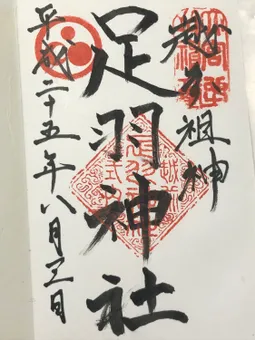 越乃祖神
足羽神社
平成二十五年八月三日